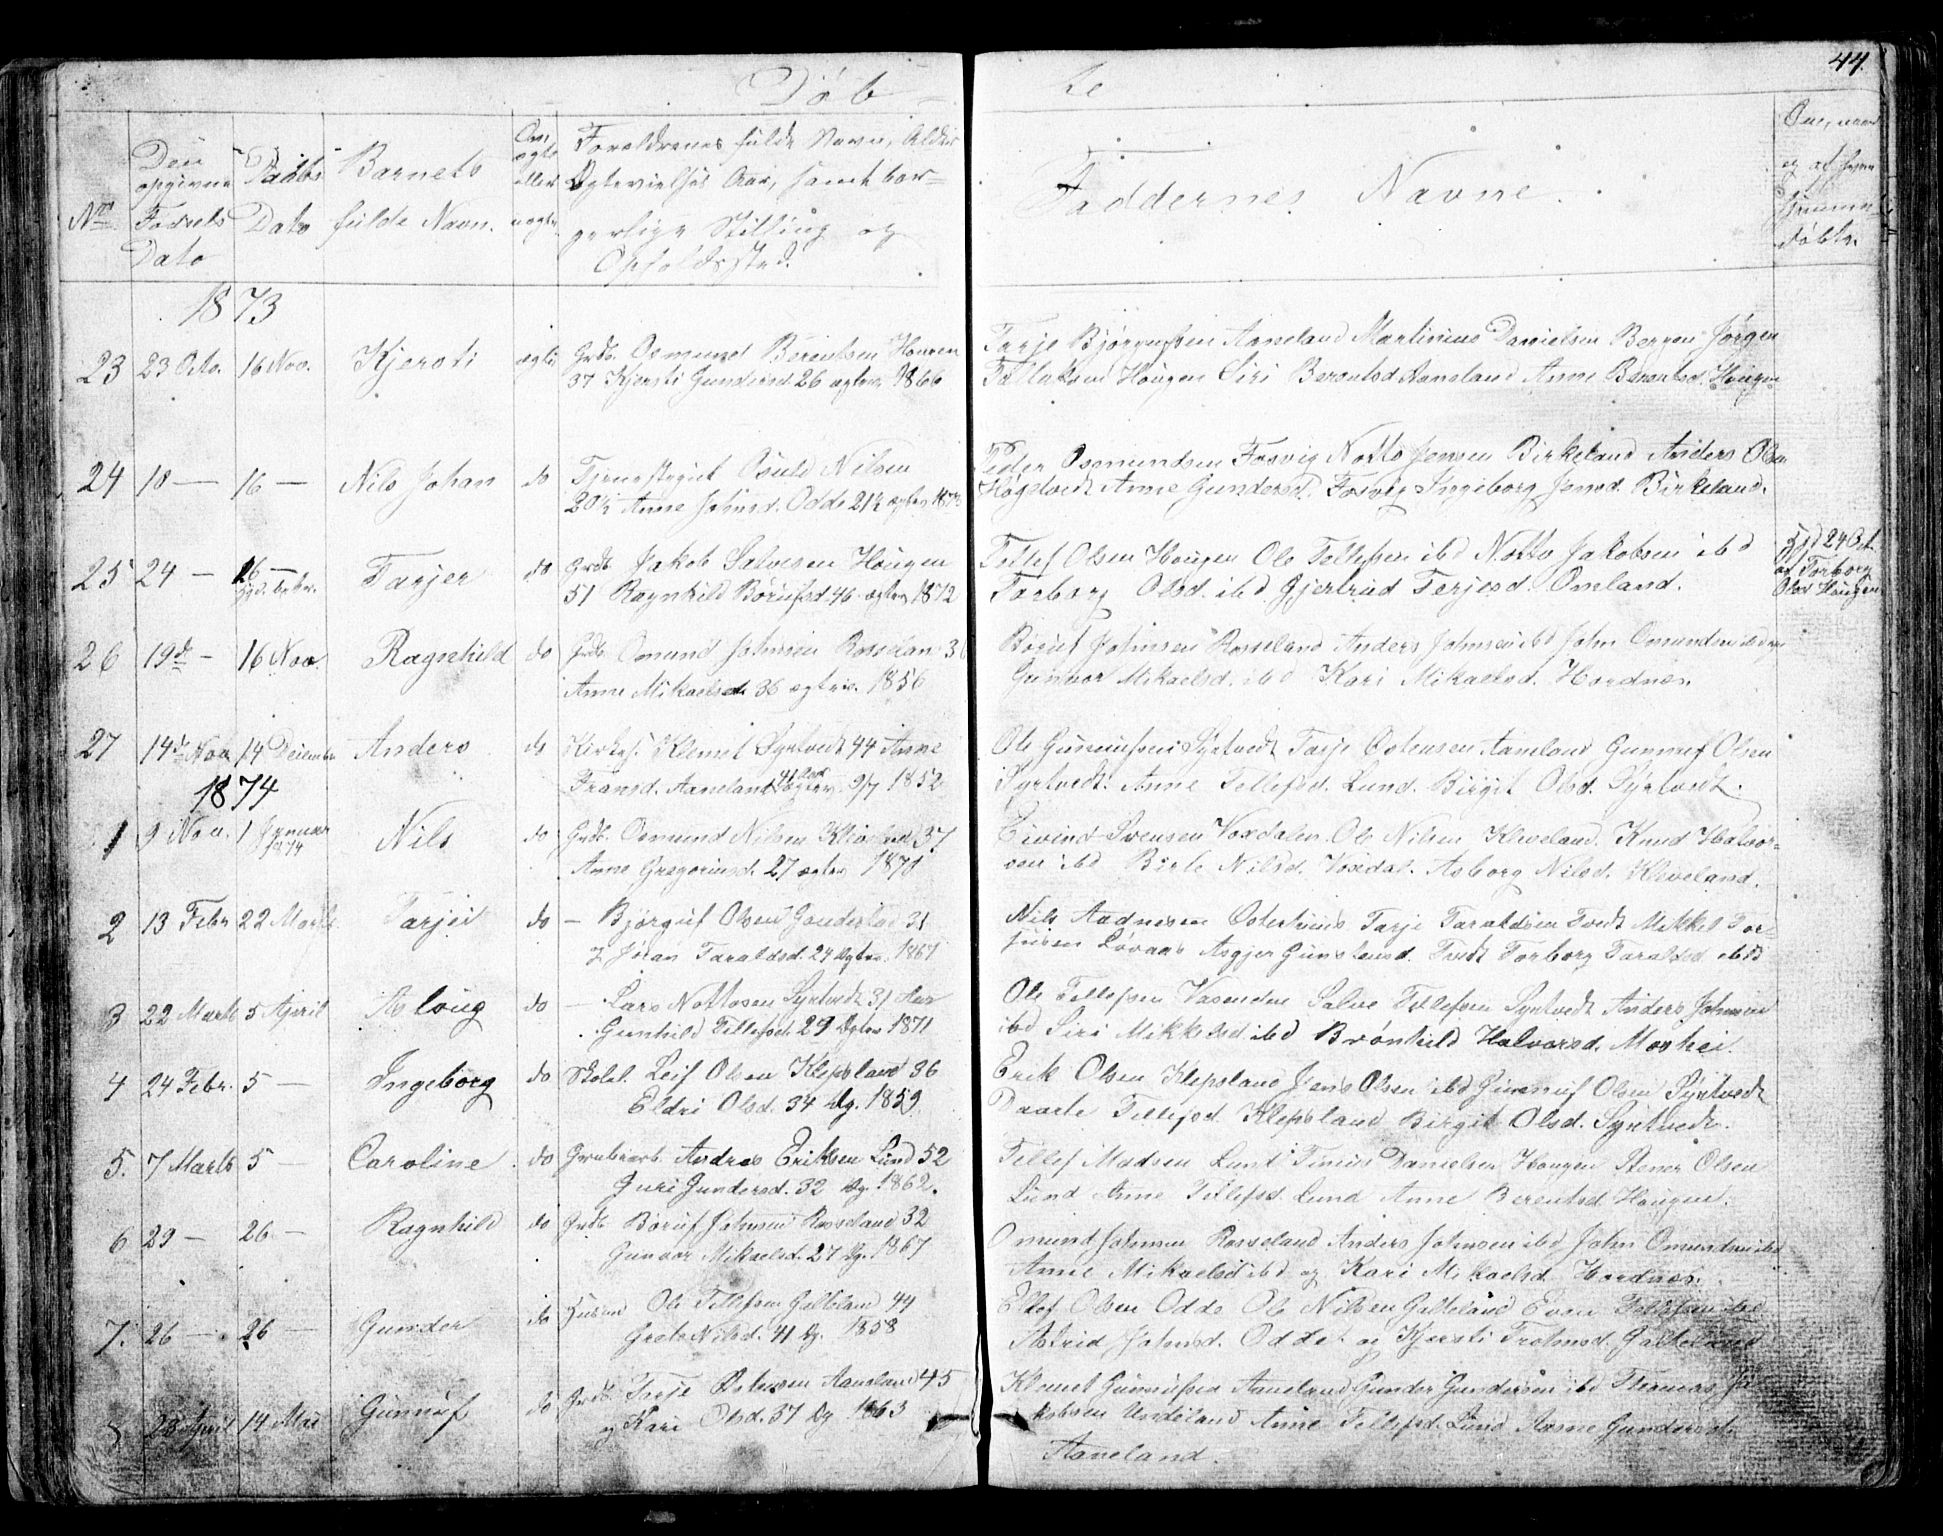 44.
Døb - te
Nr
Den opgivne Fødsels Dato
Daabs Dato
Barnets fulde Navn.
Om ægte eller uægte
Forældrenes fulde Navn, Alder
Ægtevielses Aar, samt bor=
gerlige Stilling og
Opholdssted.
Faddernes Navne.
Om, naar og af hvem hjemmedøbt.
1873
23 23 Octo. 16 Nov. Kjersti ægte Grdb. Osmund Berentsen Hougen
37 Kjersti Gundersd 26 ægtev. 1866
Tarje Bjørgufsen Aaneland Martinius Danielsen Bergen Jørgen
Hougen Siri Berentsd Aaneland Anne Berentsd. Hougen
24 18 — 16 — Nils Johan do Tjenestegut Osuld Nilsen
20½ Anne Johnsd. Odde 21½ ægtev 1873
Peder Osmundsen Fosvig Notto Jensen Birkeland Anders Olsen
Høgetvedt Anne Gundersd. Fosvig Ingeborg Jensd. Birkeland.
25 24 — 26 — Tarjer do Grdb. Jakob Salvesen Hougen
hjd. bekr.
51 Ragnhild Børufsd 46 ægtev 1872
Tellef Olsen Hougen Ole Tellefsen ibd Notto Jakobsen ibd
Torborg Olsd. ibd Gjertrud Terjesd. Omland.
Hjd 24 Oct. af Torborg Olsd Hougen
26 19de — 16 Nov. Ragnhild do Grdb. Osmund Johnsen Rosseland 36
Anne Mikaelsd. 36 ægtev. 1856
Børuf Johnsen Rosseland Anders Johnsen ibd John Omundsen
Gunvor Mikaelsd. ibd Kari Mikaelsd. Hordnes.
27 14de Nov. 14 December Anders do Kirkes. Klemet Syrtvedt 44 Anne
Fransd. Aaneland 41 Aar ægtev. 9/7 1852
Ole Gunnufsen Syrtvedt Tarje Ostensen Aaneland Gunnuf Olsen
Syrtvedt. Anne Tellefsd. Lund. Birgit Olsd. Syrtvedt.
1874
1 9 Nov. 1 Januar 1874 Nils do Grdb. Osmund Nilsen Kleveland 37
Anne Gregoriusd. 27 ægtev 1871
Eivind Svensen Voxdalen. Ole Nilsen Kleveland. Knud Halvor-
sen ibd Birte Nilsd. Voxdal. Asborg Nilsd. Kleveland.
2 13 Febr 22 Marts Tarjei do — Bjørguf Olsen 31
Joran Taraldsd. 24 Ægtev. 1867
Nils Aadnesen Osterhuus Tarje Taraldsen Tvedt Mikkel Tor-
Løvaas Asgjer Gunstensd. Tvedt Torborg Taraldsd ibd
3 22 Marts 5 April Aslaug do — Lars Nottosen Syrtvedt 31 Aar
Gunhild Tellefsd. 29 Ægtev 1871
Ole Tellefsen Vasenden Salve Tellefsen Syrtvedt Anders Johnsen
ibd Siri Mikkelsd ibd Brønhild Halvorsd. Moshei.
4 24 Febr. 5 — Ingeborg do Skolel. Leif Olsen Klepsland 36
Eldri Olsd. 34 Æg. 1859.
Erik Olsen Klepsland Jens Olsen ibd Gunnuf Olsen Syrtvedt
Daarte Tellefsd. Klepsland Birgit Olsd. Syrtvedt.
5. 7 Marts 5 — Caroline do Grubearb. Andreas Eriksen Lund 52
Guri Gundersd. 32 Æg. 1862.
Tellef Madsen Lund Tinius Danielsen Hougen Stener Olsen
Lund Anne Tellefsd. Lund Anne Berentsd Hougen.
6 29 — 26 — Ragnhild do Grdb. Boruf Johnsen Rosseland 32
Gunvor Mikaelsd. 27 Æg. 1867
Omund Johnsen Rosseland Anders Johnsen ibd John Omundsen ibd
Anne Mikaelsd ibd og Kari Mikaelsd. Hordnes.
7. 26 — 26 — Gunder do Husm Ole Tellefsen Galteland 44
Grete Nilsd. 41 Æg. 1858
Ellef Olsen Odde Ole Nilsen Galteland Even Tellefsen ibd
Astrid Johnsd. Odde. og Kjersti Trohnsd. Galteland
8 28 April 14 Mai Gunnuf do Grdb. Tarje Ostensen Aaneland 45
og Kari Olsd. 37 Æg 1863
Klemet Gunnufsen Aaneland Gunder Gundersen ibd Thomas Ja-
kobsen Undeland Anne Tellefsd. Lund Aasne Gundersd
Aaneland.